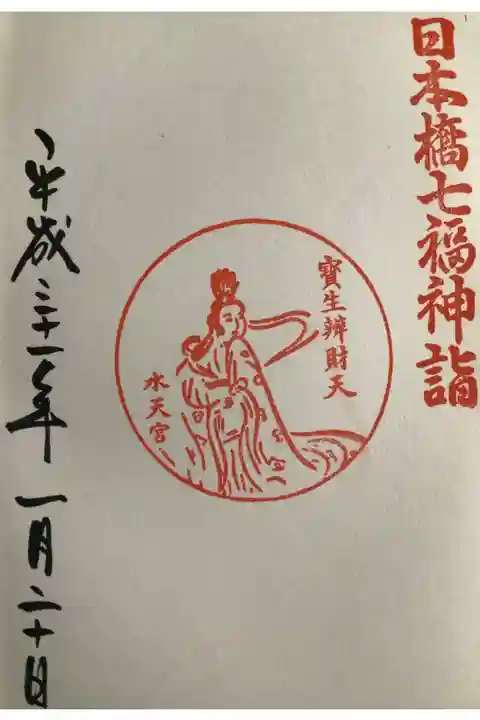 日本橋七福神詣
寳生辨財天
水天宮
平成三十一年一月二十日